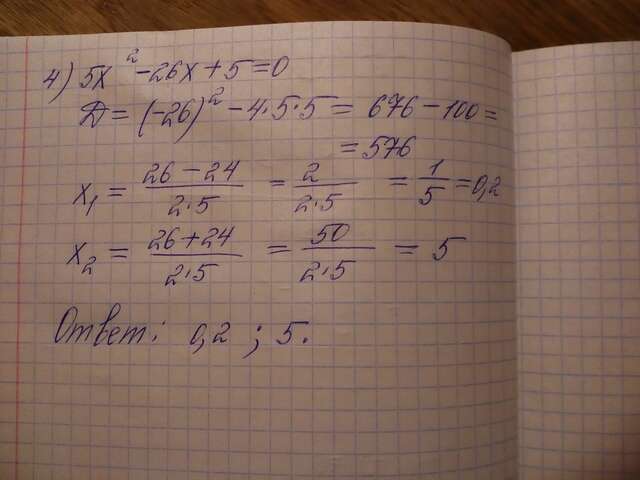 4) 5x² - 26x + 5 = 0
Д = (-26)² - 4·5·5 = 676 - 100 =
= 576
x₁ = (26 - 24)/(2·5) = 2/(2·5) = 1/5 = 0,2
x₂ = (26 + 24)/(2·5) = 50/(2·5) = 5
Ответ: 0,2 ; 5.